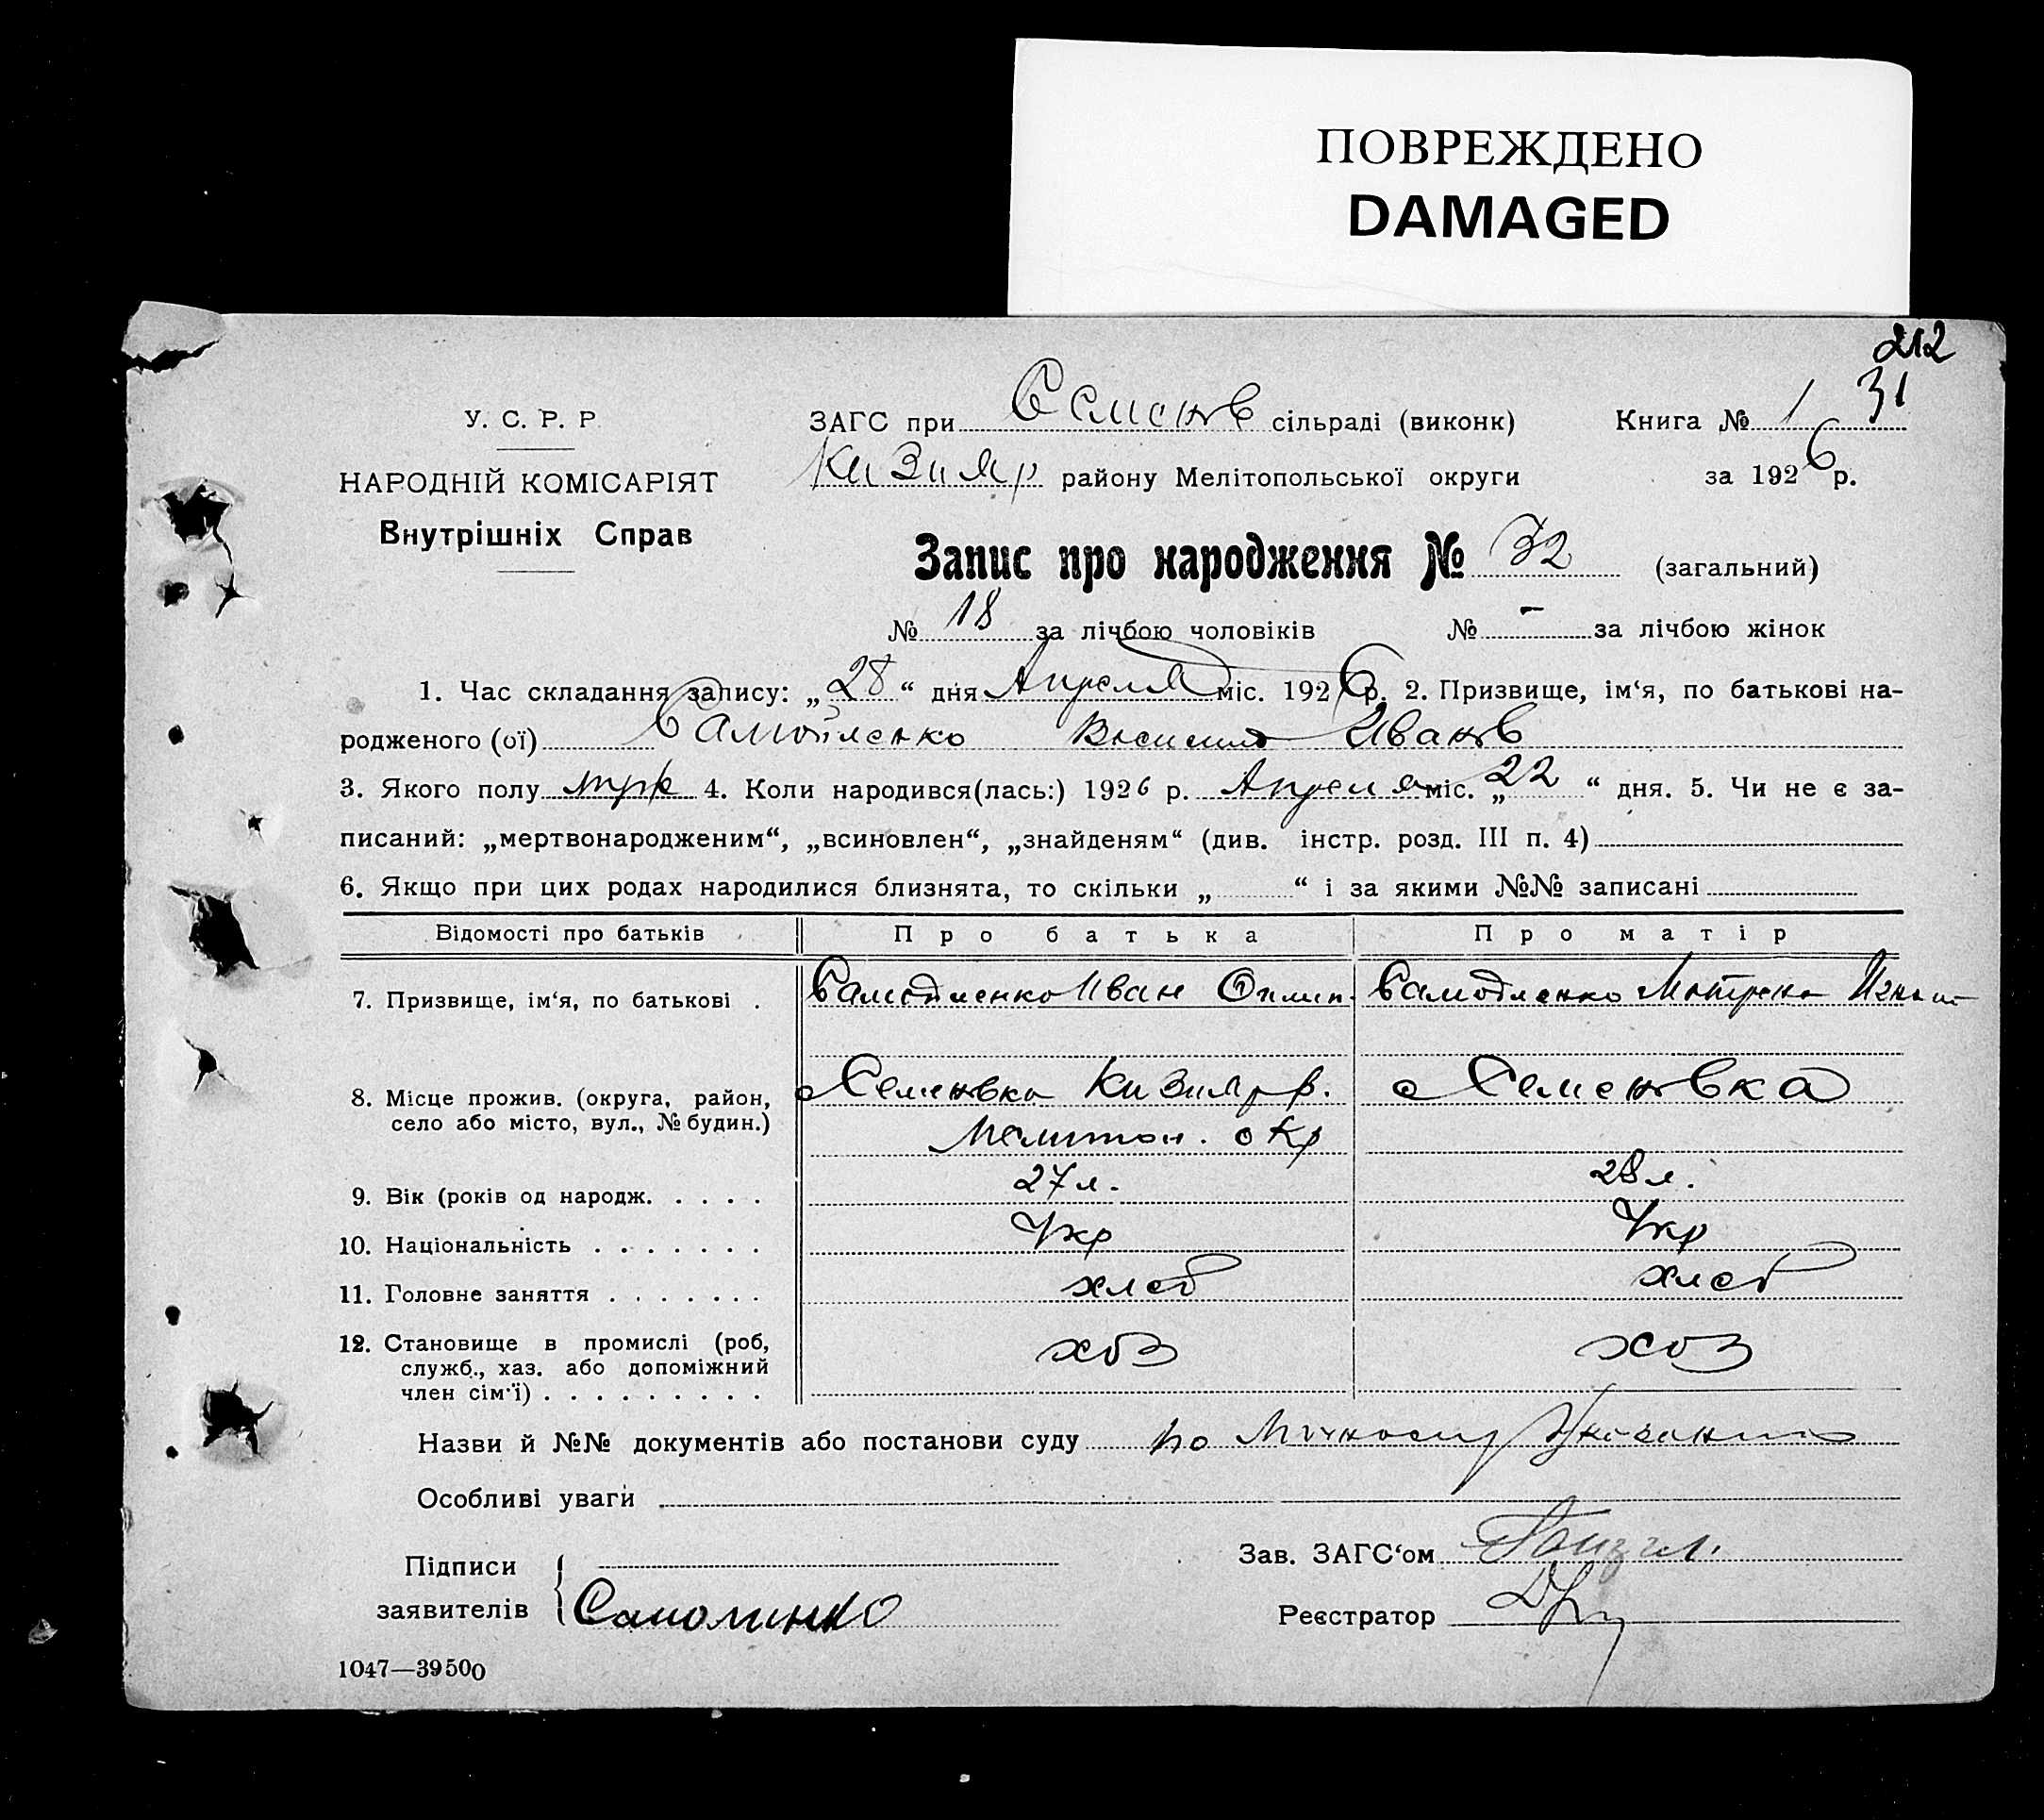 ПОВРЕЖДЕНО
DAMAGED
212
31
У. С. Р. Р.
НАРОДНІЙ КОМІСАРІЯТ
Внутрішніх Справ
ЗАГС при Семенов сільраді (виконк) Книга № 1
Кизияр району Мелітопольської округи за 1926 р.
Запис про народження № 32 (загальний)
№ 18 за лічбою чоловіків № - за лічбою жінок
1. Час складання запису: „28“ дня Апреля міс. 1926 р. 2. Призвище, ім‘я, по батькові на-
родженого (ої) Самойленко Василь Иванов
3. Якого полу 4. Коли народився(лась:) 1926 р. Апреля міс. „22“ дня. 5. Чи не є за-
писаний: „мертвонародженим“, „всиновлен“, „знайденям“ (див. інстр. розд. III п. 4)
6. Якщо при цих родах народилися близнята, то скільки „ “ і за якими №№ записані
Відомості про батьків Про батька Про матір
7. Призвище, ім‘я, по батькові . Самойленко Иван Самойленко Матрена Игнат
8. Місце прожив. (округа, район, село або місто, вул., № будин.) с Семеновка Кизияр р. с Семеновка
Мелитоп. окр
9. Вік (років од народж. . . . . 27 л. 28 л.
10. Національність . . . . . . . Укр Укр
11. Головне заняття . . . . . . . хлеб хлеб
12. Становище в промислі (роб, служб., хаз. або допоміжний член сім‘ї) . . . . . . . . . хоз хоз
Назви й №№ документів або постанови суду по личному
Особливі уваги
Підписи
заявителів Самолинко
Зав. ЗАГС‘ом
Реєстратор
1047—39500